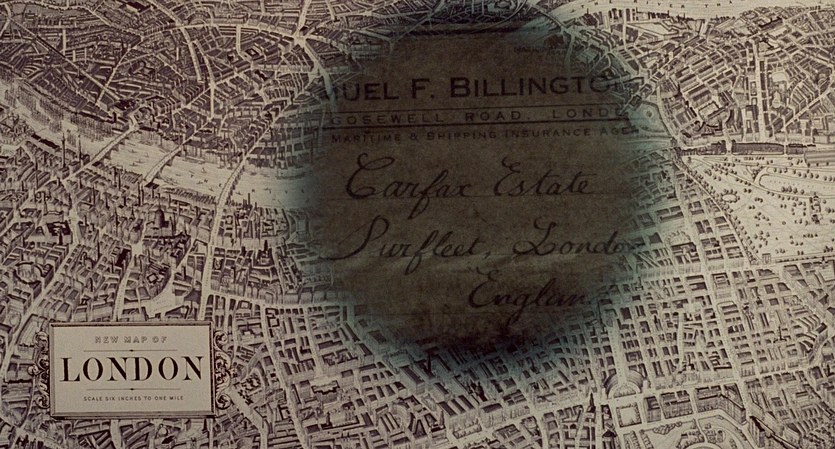 MUEL F. BILLINGTO
GOSEWELL ROAD, LONDO
MARITIME & SHIPPING INSURANCE AGE
Carfax Estate
Purfleet, London
England
NEW MAP OF
LONDON
SCALE SIX INCHES TO ONE MILE